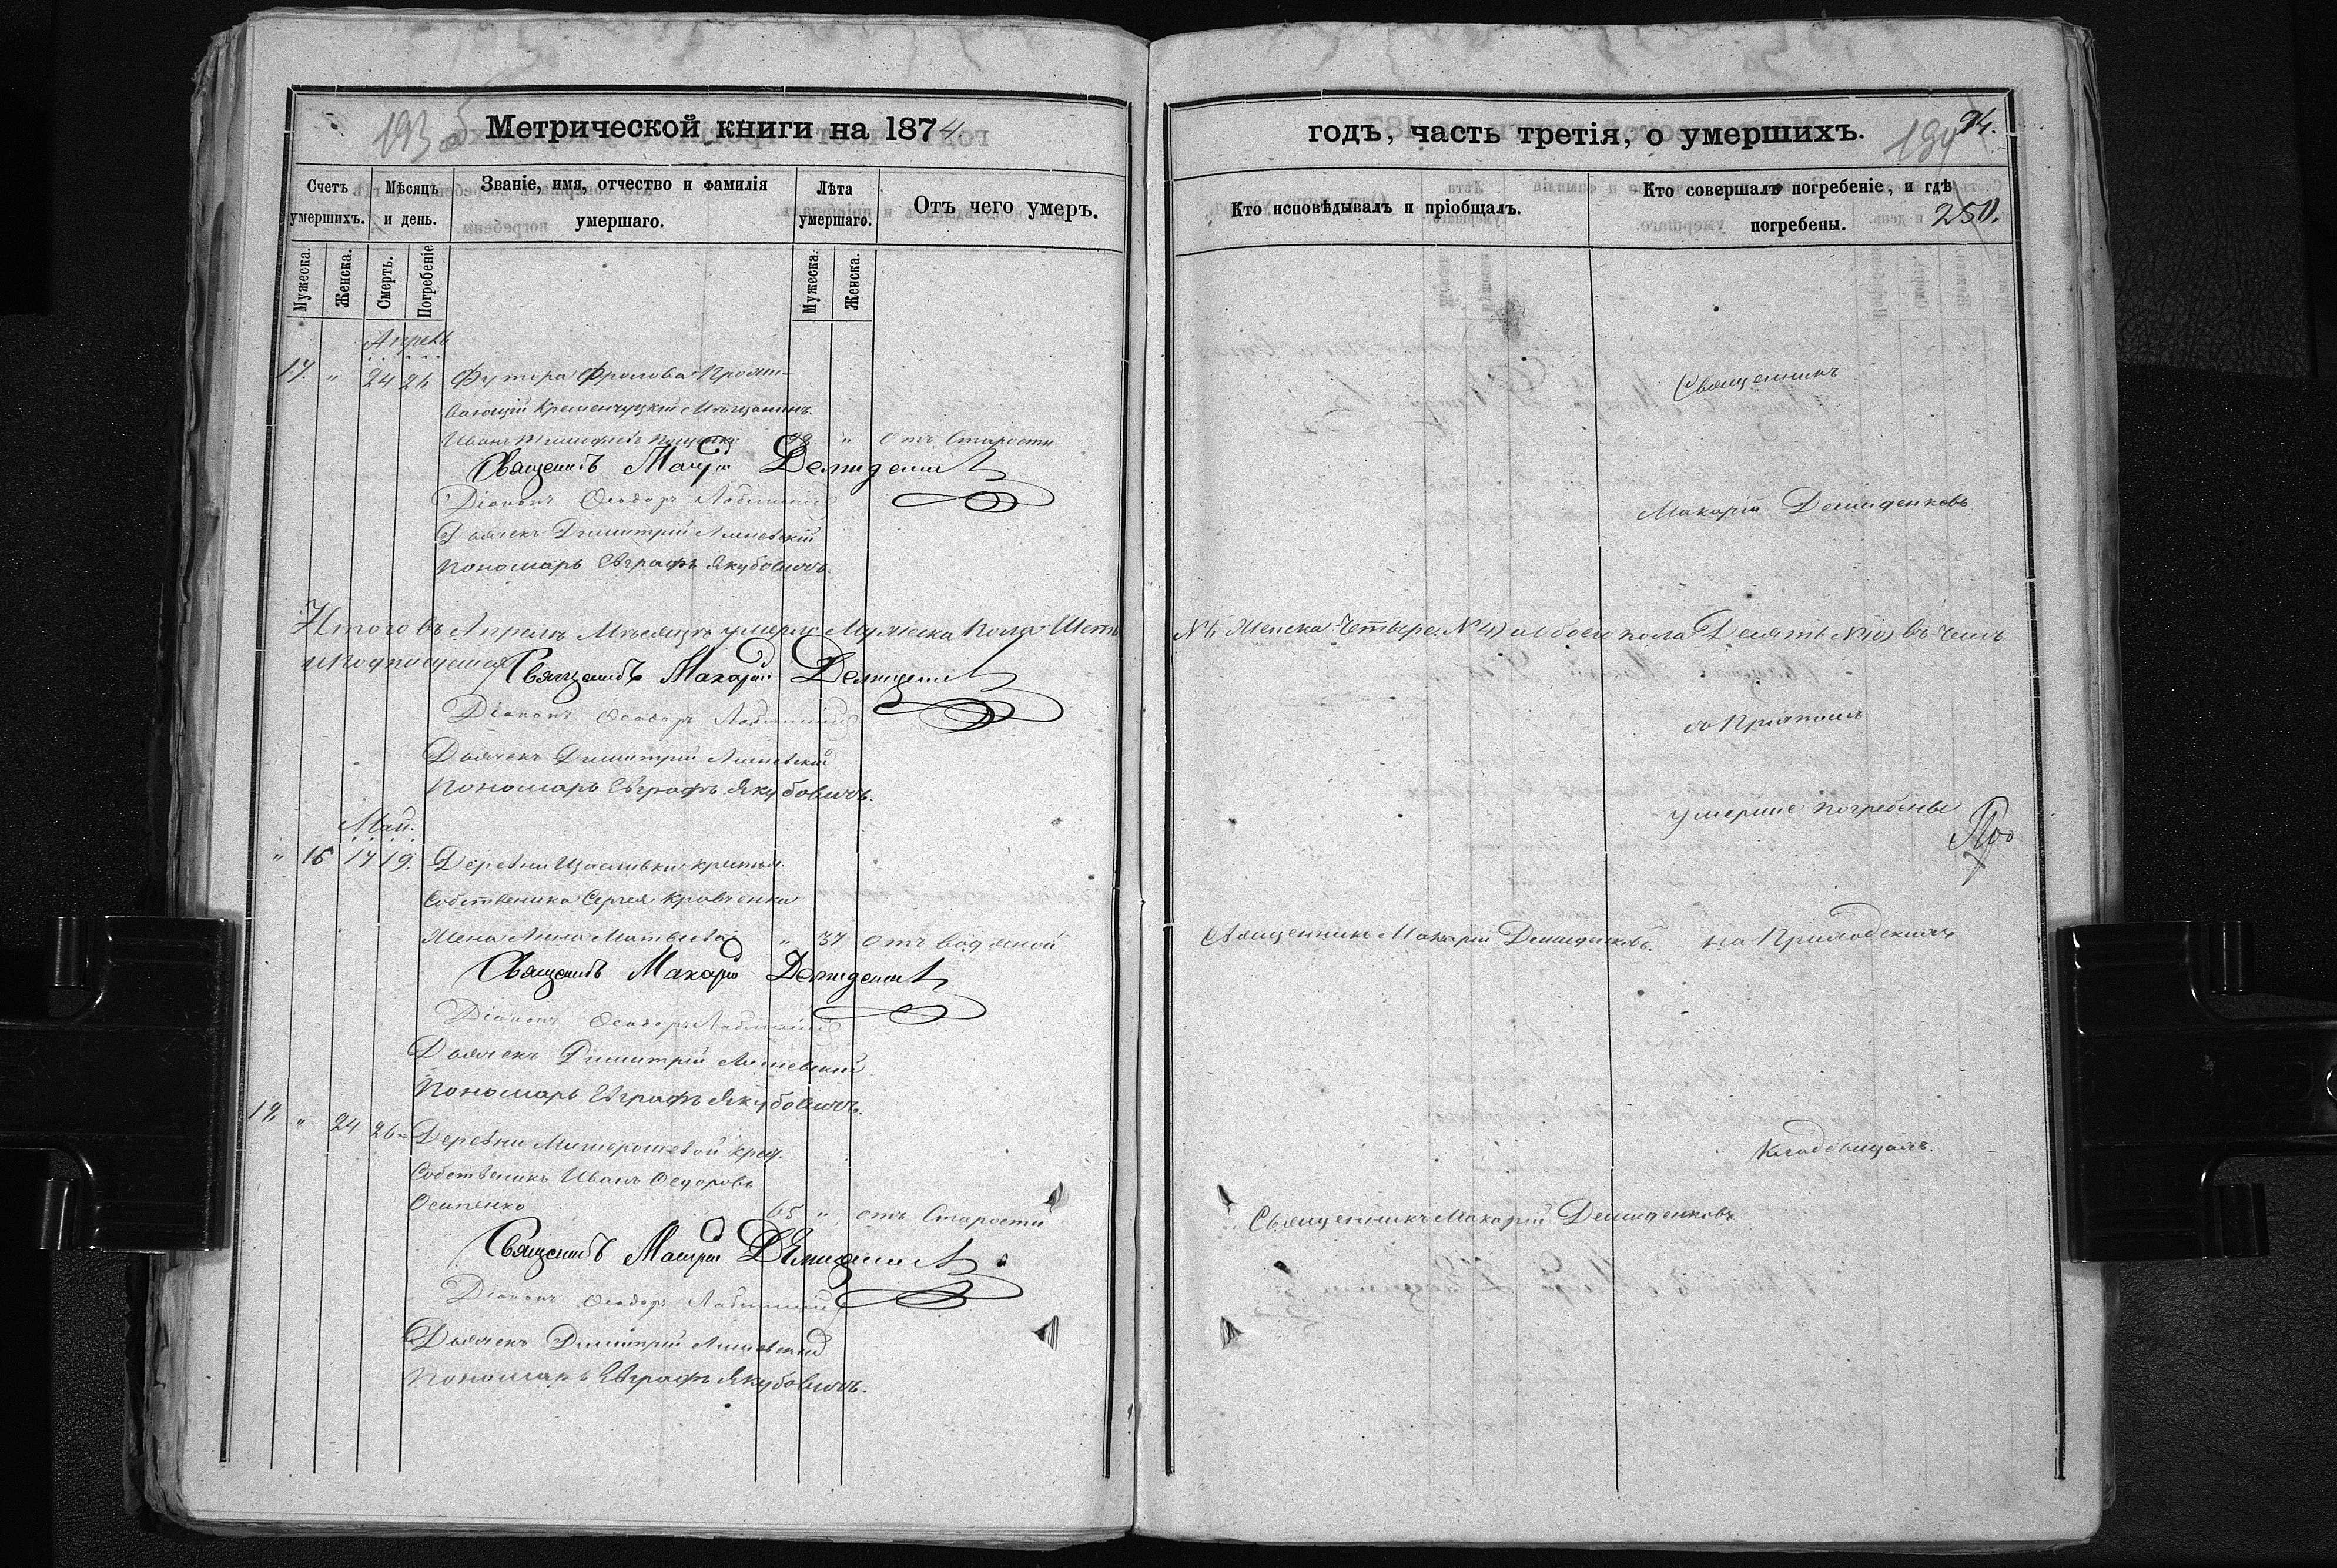 193 об
Метрической книги на 1874
Счетъ умершихъ.
Мѣсяцъ и день.
Званіе, имя, отчество и фамилія умершаго.
Лѣта умершаго.
Отъ чего умеръ.
Мужеска.
Женска.
Смерть.
Погребеніе
Мужеска.
Женска.
Апрель
17. " 24 26 Хутора Фролова Прожи-
вающій Кременчуцкій Мѣщанинъ
Иванъ " отъ Старости
Священникъ Макарій Демиденковъ
Діаконъ Ѳеодоръ
Дьячекъ Димитрій
Пономарь Евграфъ Якубовичъ.
Итого въ Апрелѣ Мѣсяцѣ умерло Мужеска пола Шесть
и подписуемся Священникъ Макарій Демиденковъ
Діаконъ Ѳеодоръ
Дьячекъ Димитрій
Пономарь Евграфъ Якубовичъ.
Май.
" 16 17 19. Деревни Щасливки крестья.
Собственика Сергея Кравченка
Жена Анна Матвѣева " 37 отъ водяной
Священникъ Макарій Демиденковъ
Діаконъ Ѳеодоръ
Дьячекъ Димитрій
Пономарь Евграфъ Якубовичъ.
18 " 24 26 Деревни крест.
Собственикъ Иванъ Ѳедоровъ
Осипенко 65 " отъ Старости
Священникъ Макарій Демиденковъ
Діаконъ Ѳеодоръ
Дьячекъ Димитрій
Пономарь Евграфъ Якубовичъ.
годъ, часть третія, о умершихъ.
194 94.
Кто исповѣдывалъ и пріобщалъ.
Кто совершалъ погребеніе, и гдѣ погребены.
250.
Священникъ
Макарій Демиденковъ
N 6 Женска Четыре N 4) а обоего пола Десять N 10) въ чемъ
съ Причтомъ
умершие погребены
на Приходскихъ
Священникъ Макарій Демиденковъ.
Кладбищахъ.
Священникъ Макарій Демиденковъ